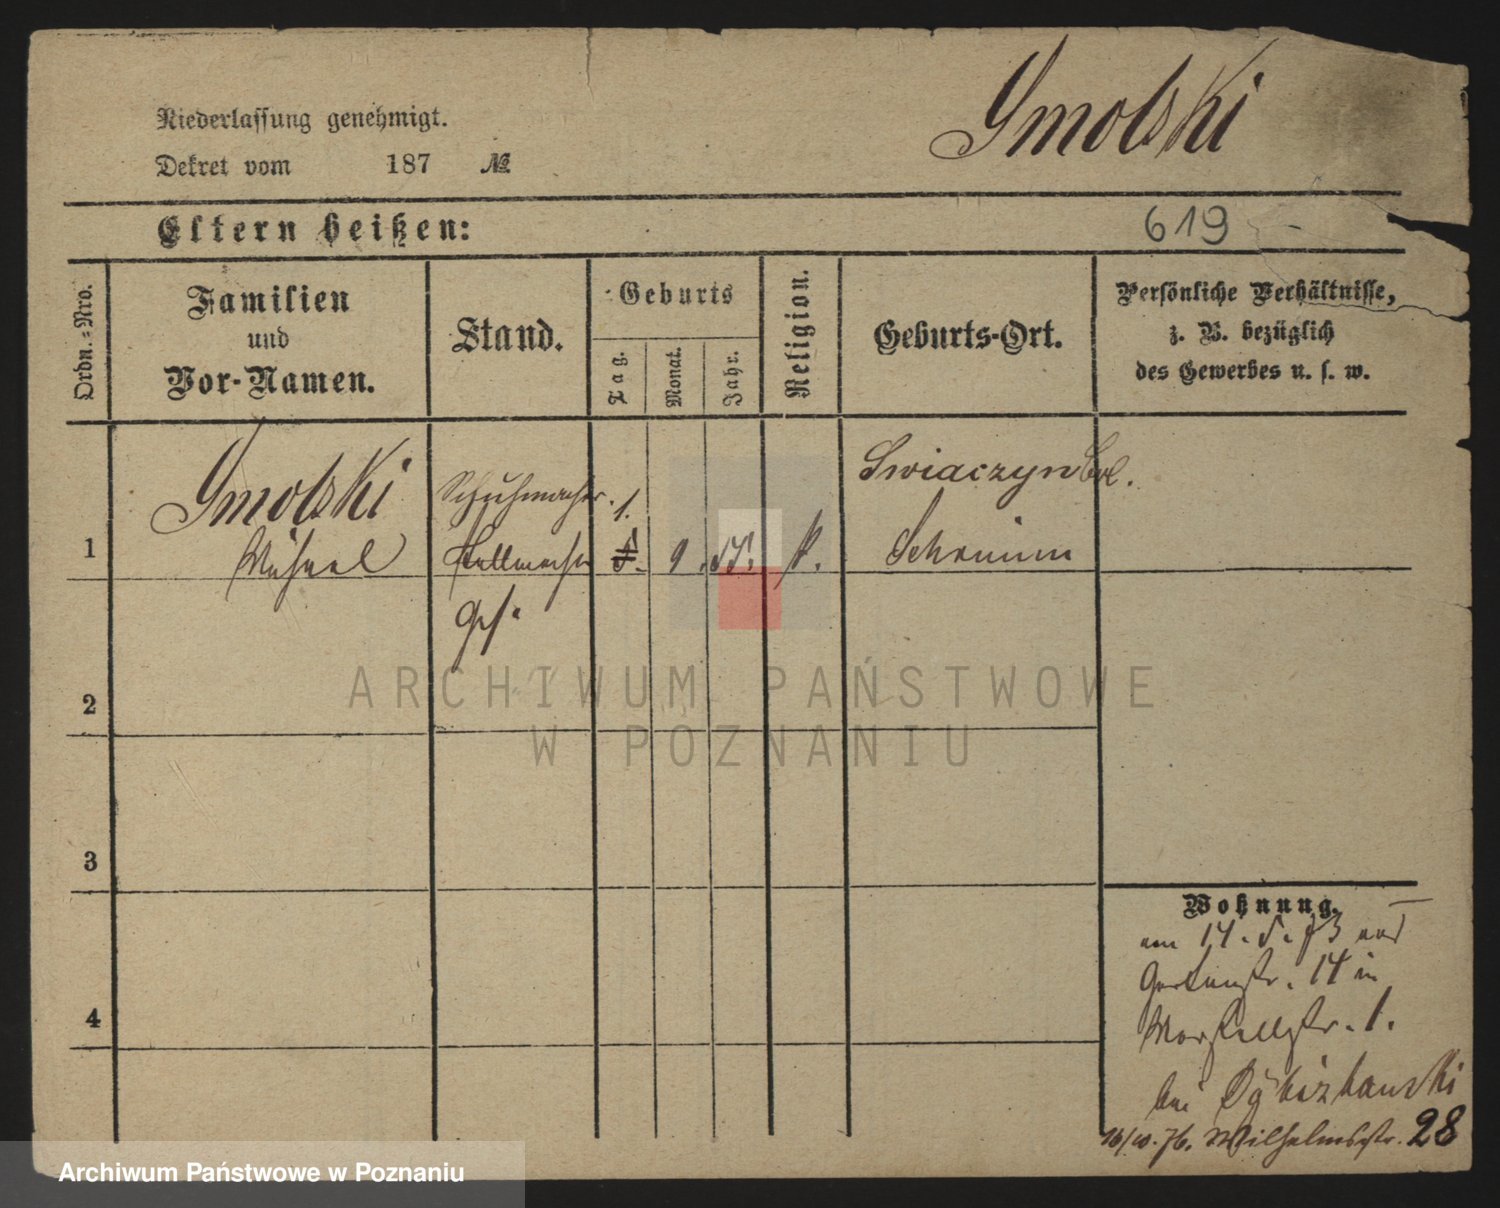 Gmolski
Niederlassung genehmigt.
Dekret vom 187 №
Eltern heißen:
619
Ordn.-Nro.
Familien
und
Vor-Namen.
Stand.
Geburts
Tag.
Monat.
Jahr.
Religion.
Geburts-Ort.
Persönliche Verhältnisse,
z. B. bezüglich
des Gewerbes u. s. w.
1
Gmolski
Michael
Schuhmacher.
Stellmacher
Ges.
1.
9.
Swiaczyn
Schrimm
2
3
4
Wohnung.
am 14. 5. 73 aus
Gartenstr. 14 in
Marstallstr. 1.
bei
16/10. 76. Wilhelmsstr. 28
ARCHIWUM PAŃSTWOWE
W POZNANIU
Archiwum Państwowe w Poznaniu